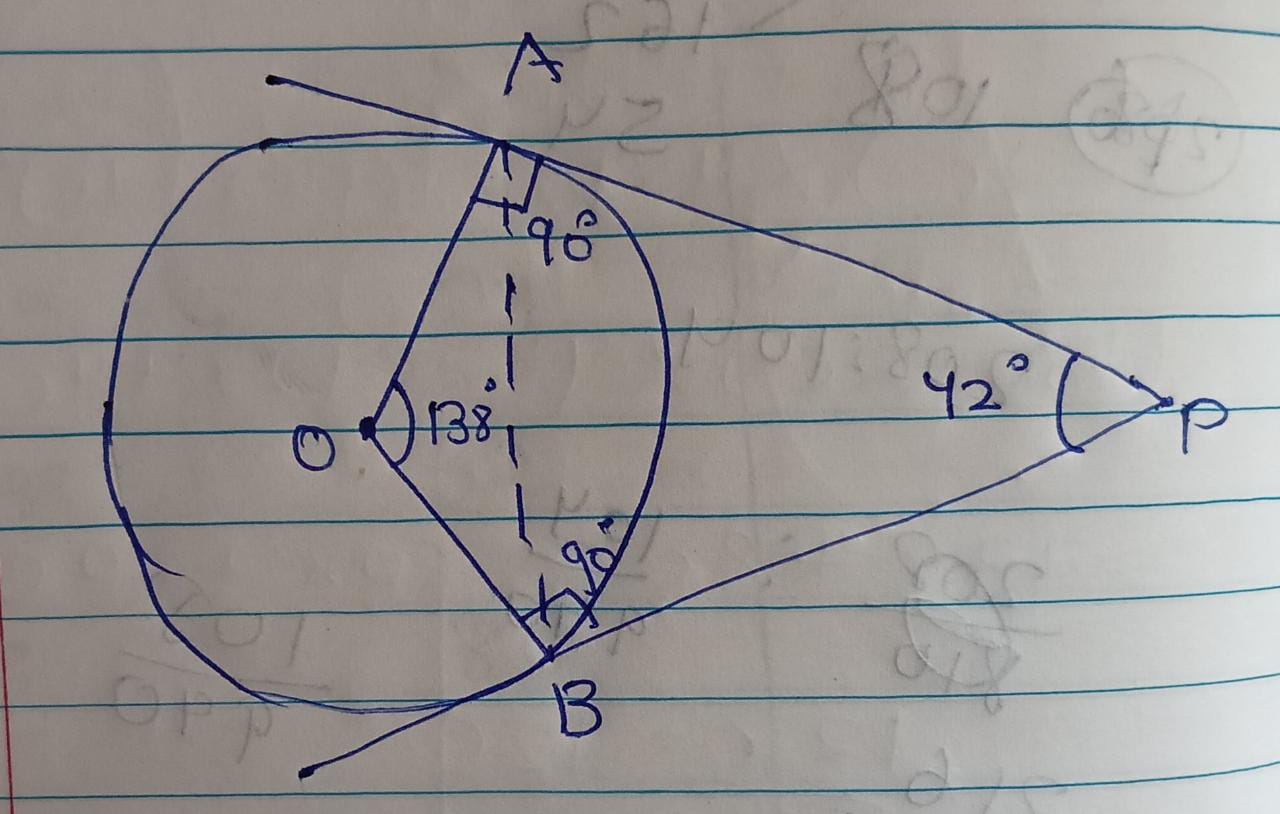 A
90°
42°
P
O
138°
90°
B